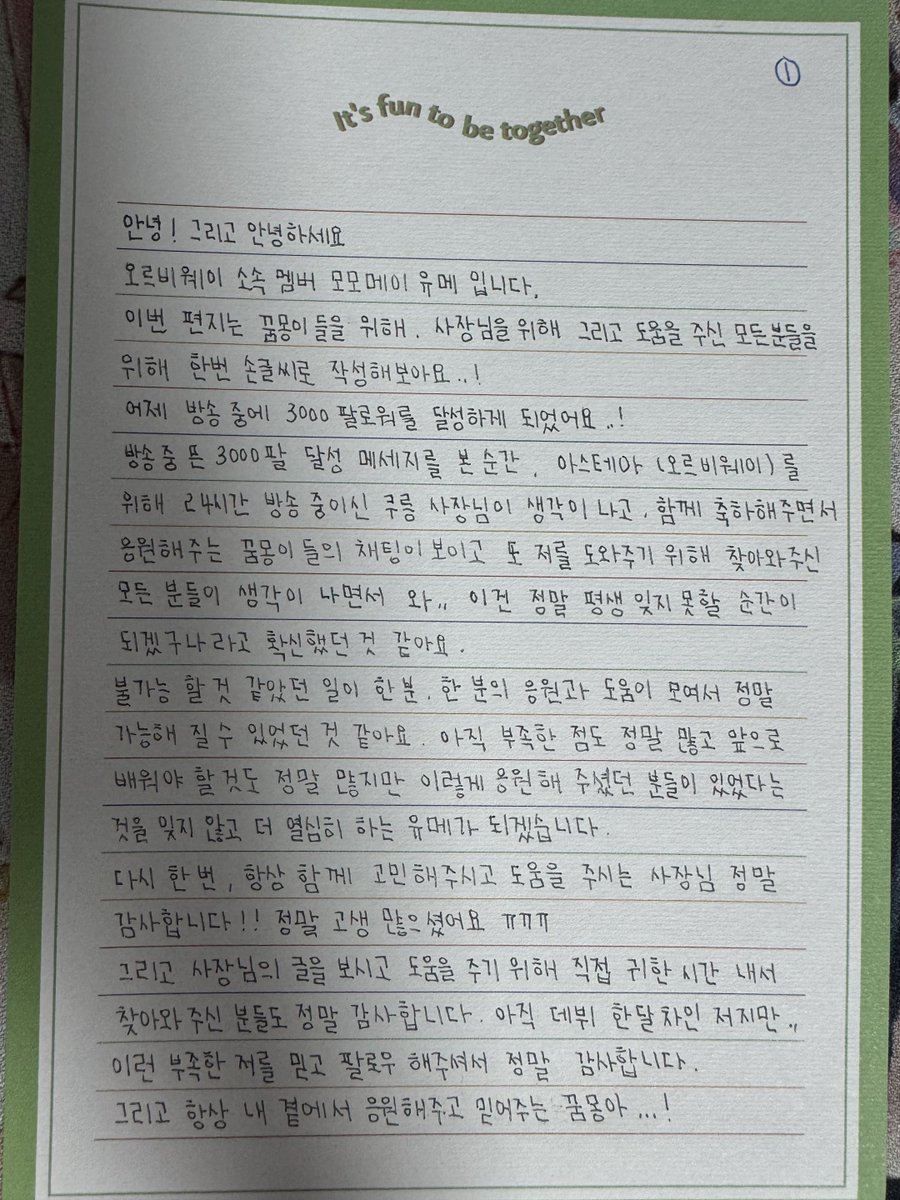 ①
It's fun to be together
안녕! 그리고 안녕하세요
오르비웨이 소속 멤버 모모메이 유메 입니다.
이번 편지는 꿈몽이들을 위해. 사장님을 위해 그리고 도움을 주신 모든분들을
위해 한번 손글씨로 작성해보아요..!
어제 방송 중에 3000 팔로워를 달성하게 되었어요..!
방송중 뜬 3000팔 달성 메세지를 본 순간, 아스테야 (오르비웨이)를
위해 24시간 방송 중이신 쿠릉 사장님이 생각이 나고, 함께 축하해주면서
응원해주는 꿈몽이 들의 채팅이 보이고 또 저를 도와주기 위해 찾아와주신
모든 분들이 생각이 나면서 와.. 이건 정말 평생 잊지 못할 순간이
되겠구나 라고 확신했던 것 같아요.
불가능 할 것 같았던 일이 한분. 한 분의 응원과 도움이 모여서 정말
가능해 질 수 있었던 것 같아요. 아직 부족한 점도 정말 많고 앞으로
배워야 할것도 정말 많지만 이렇게 응원해 주셨던 분들이 있었다는
것을 잊지 않고 더 열심히 하는 유메가 되겠습니다.
다시 한번, 항상 함께 고민해주시고 도움을 주시는 사장님 정말
감사합니다!! 정말 고생 많으셨어요 ㅠㅠㅠ
그리고 사장님의 글을 보시고 도움을 주기 위해 직접 귀한 시간 내서
찾아와 주신 분들도 정말 감사합니다. 아직 데뷔 한달차인 저지만..
이런 부족한 저를 믿고 팔로우 해주셔서 정말 감사합니다.
그리고 항상 내 곁에서 응원해주고 믿어주는 꿈몽아...!